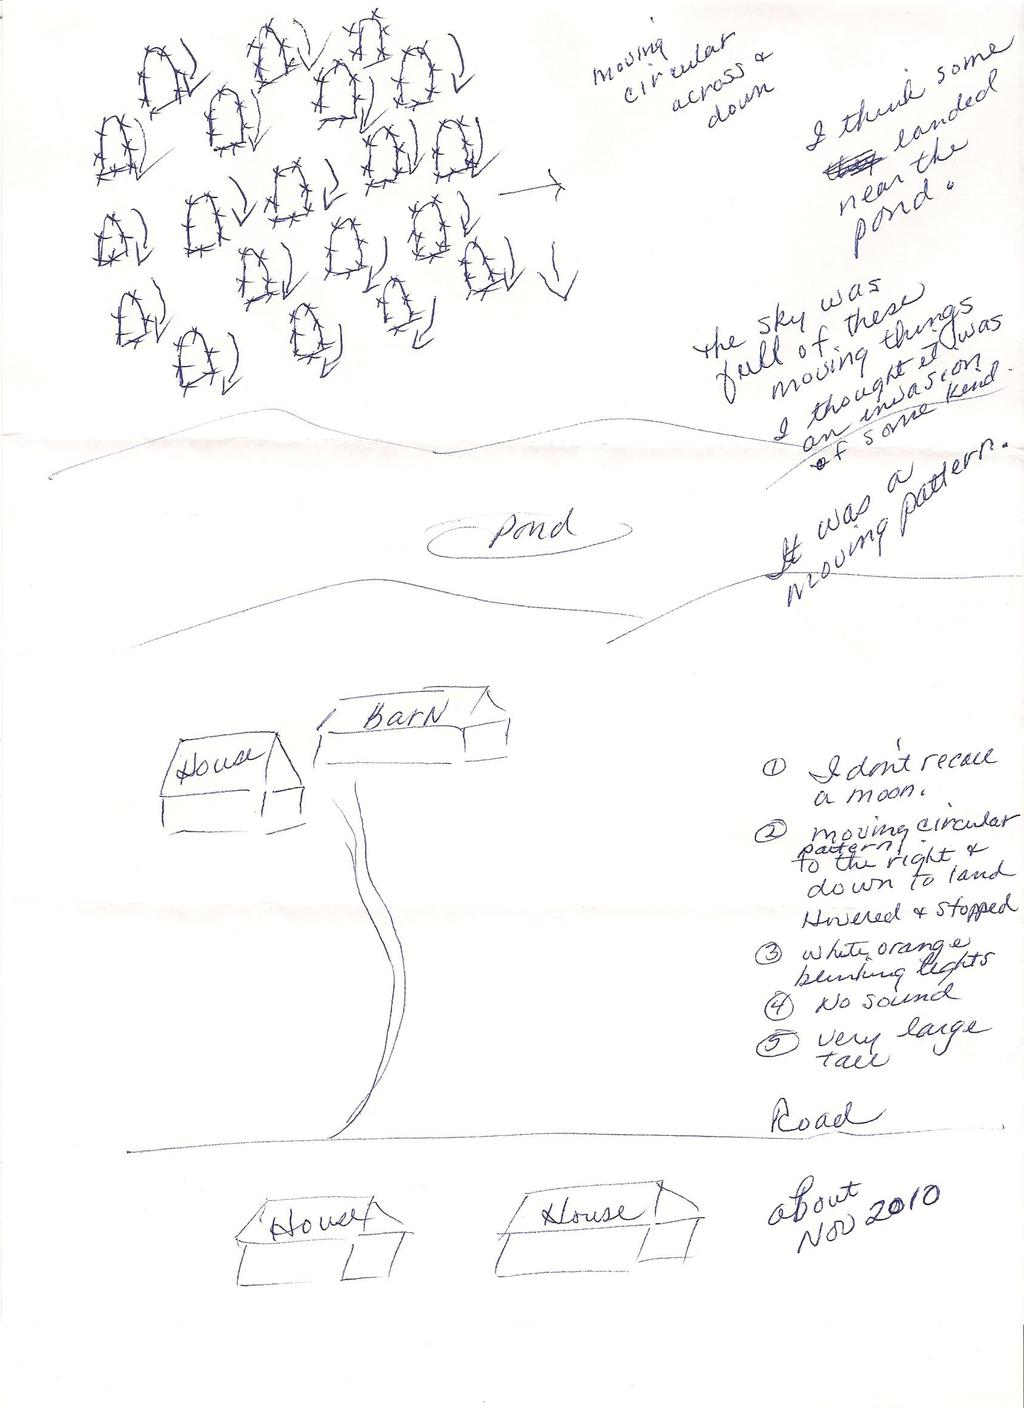 moving
circular
across &
down
I think some
landed
near the
pond.
the sky was
full of these
moving things
I thought it was
an invasion
of some kind.
It was a
moving pattern.
Pond
Barn
House
① I don't recall
a moon.
② moving circular
pattern,
to the right &
down to land
Hovered & stopped
③ white, orange
blinking lights
④ No sound
⑤ very large
tall
Road
House
House
about
Nov 2010